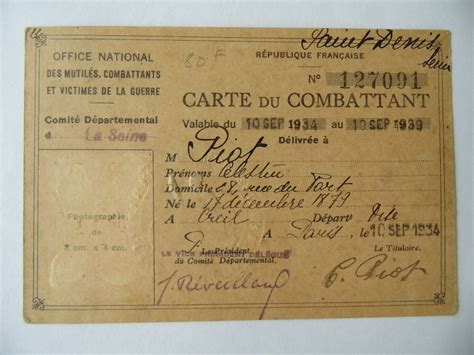 Saint Denis
Seine
OFFICE NATIONAL
DES MUTILÉS, COMBATTANTS
ET VICTIMES DE LA GUERRE
Comité Départemental
d La Seine
80 F
RÉPUBLIQUE FRANÇAISE
N° 127091
CARTE DU COMBATTANT
Valable du 10 SEP 1934 au 10 SEP 1939
Délivrée à
M Piot
Prénoms Célestin
Domicile 28, rue du Port
Né le 17 décembre 1879
à Creil Départ
à Paris le 10 SEP 1934
Photographie
de
8 cm. x 4 cm.
Le Président
du Comité Départemental,
LE VICE PRÉSIDENT DÉLÉGUÉ
Le Titulaire,
C. Piot